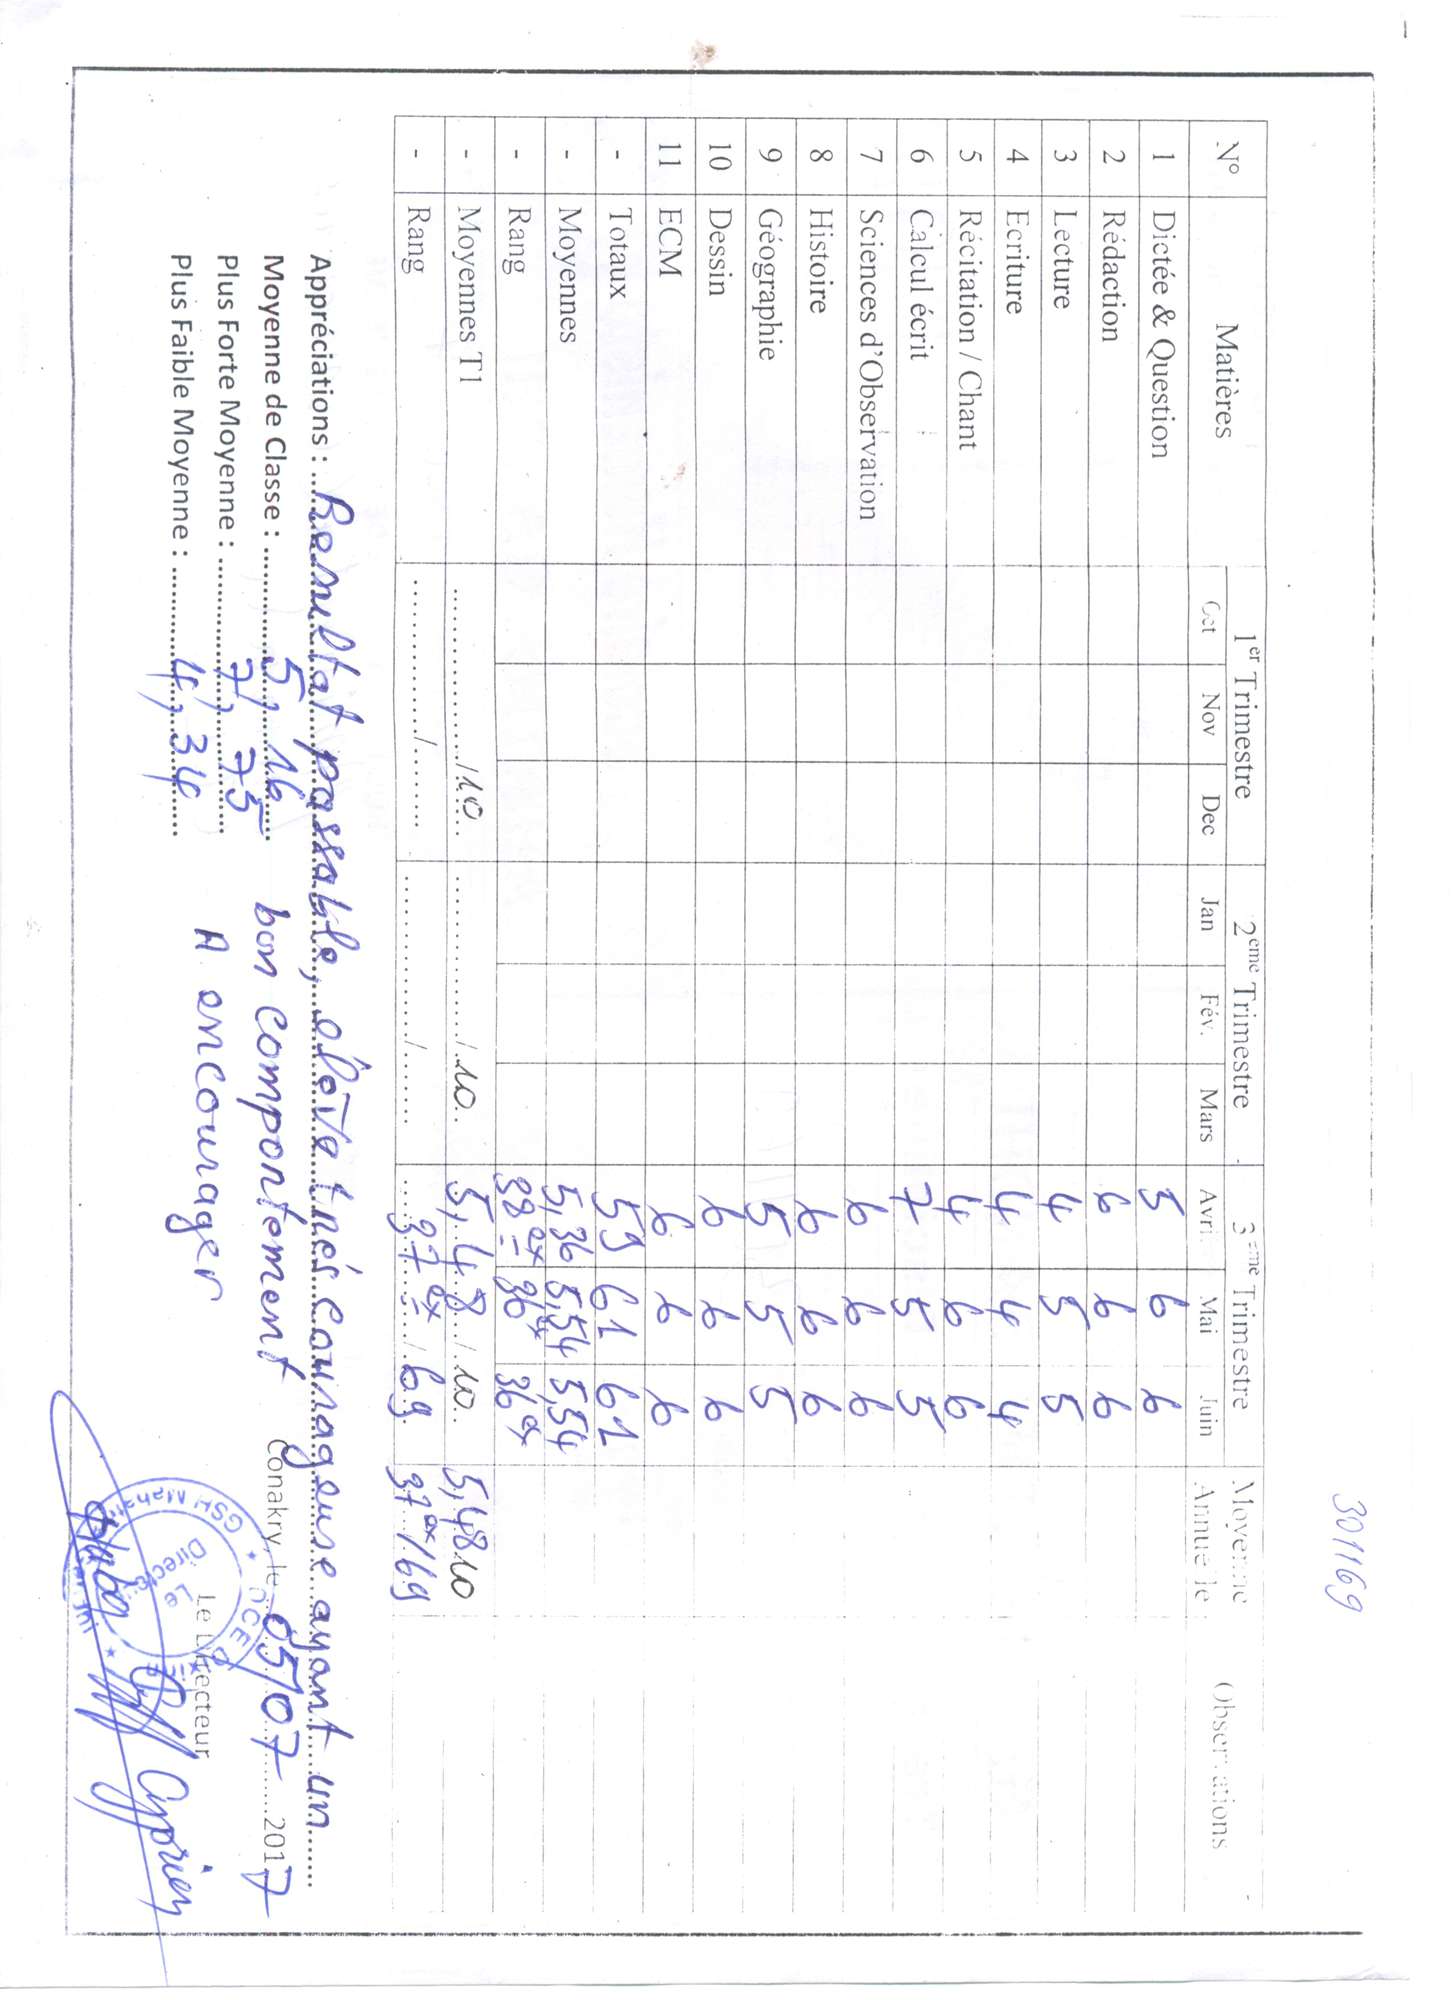 301169
N° Matières 1er Trimestre 2eme Trimestre 3eme Trimestre Moyenne Annuelle Observations
Oct Nov Dec Jan Fév. Mars Avri. Mai Juin
1 Dictée & Question 5 6 6
2 Rédaction 6 6 6
3 Lecture 4 5 5
4 Ecriture 4 4 4
5 Récitation / Chant 4 6 6
6 Calcul écrit 7 5 5
7 Sciences d'Observation 6 6 6
8 Histoire 6 6 6
9 Géographie 5 5 5
10 Dessin 6 6 6
11 ECM 6 6 6
- Totaux 59 61 61
- Moyennes 5,36 5,54 5,54
- Rang 38ex 36ex 36ex
- Moyennes T1 ............/10 ............/10 5,48/10 5,48 10
- Rang ............/........ ............/........ 37ex/69 37ex/69
Appréciations : Resultat passable, élève très courageuse ayant un
Moyenne de Classe : 5,16 bon comportement Conakry, le 05/07 2017
Plus Forte Moyenne : 7,75 A encourager Le Directeur
Plus Faible Moyenne : 4,34
GSH Mahat
Le
Directeur
Cyprien